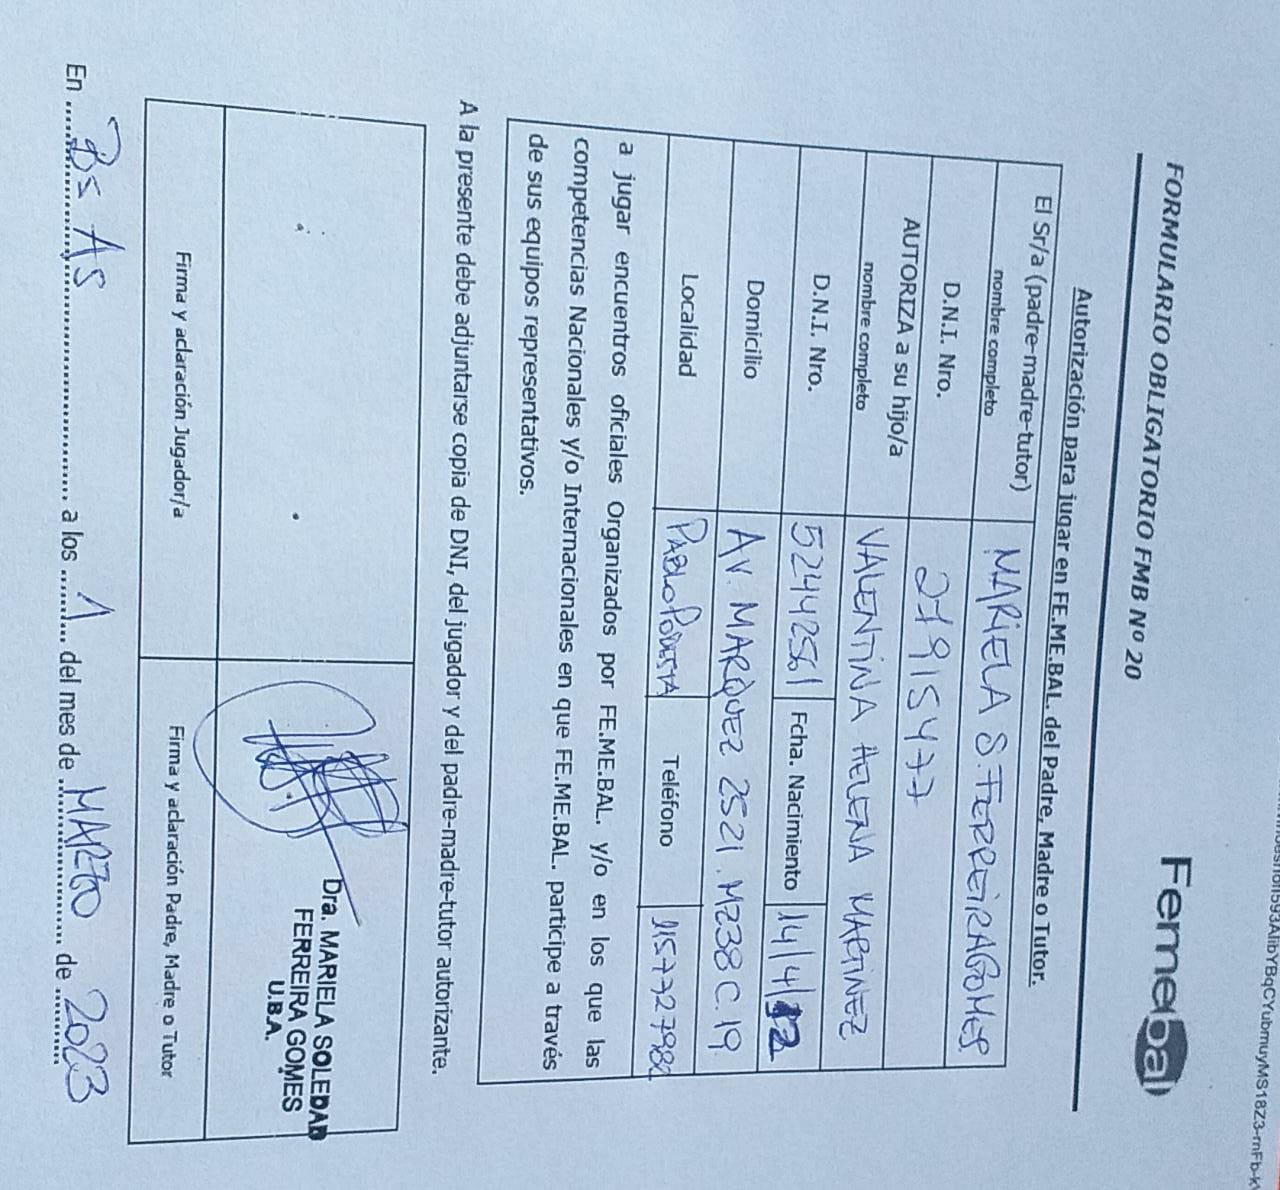 FORMULARIO OBLIGATORIO FMB Nº 20
Femebal
Autorización para jugar en FE.ME.BAL. del Padre, Madre o Tutor.
El Sr/a (padre-madre-tutor)
nombre completo
MARIELA S. FERREIRA GOMES
D.N.I. Nro.
27915477
AUTORIZA a su hijo/a
nombre completo
VALENTINA HELENA MARTINEZ
D.N.I. Nro.
52442561
Fcha. Nacimiento
14/4/12
Domicilio
AV. MARQUEZ 2521. MZ38 C.19
Localidad
PABLO PODESTA
Teléfono
a jugar encuentros oficiales Organizados por FE.ME.BAL. y/o en los que las
competencias Nacionales y/o Internacionales en que FE.ME.BAL. participe a través
de sus equipos representativos.
A la presente debe adjuntarse copia de DNI, del jugador y del padre-madre-tutor autorizante.
Dra. MARIELA SOLEDAD
FERREIRA GOMES
U.B.A.
Firma y aclaración Jugador/a
Firma y aclaración Padre, Madre o Tutor
En Bs As a los 1 del mes de MARZO de 2023